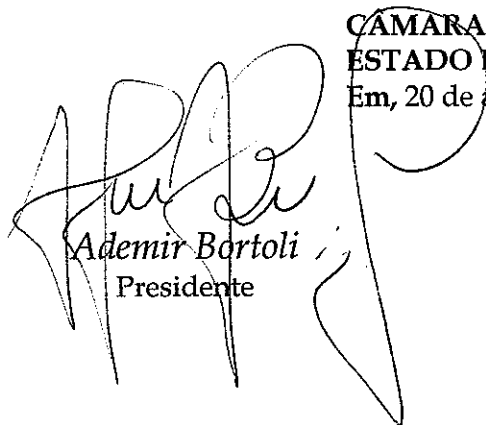 CÂMARA
ESTADO
Em, 20 de
Ademir Bortoli
Presidente